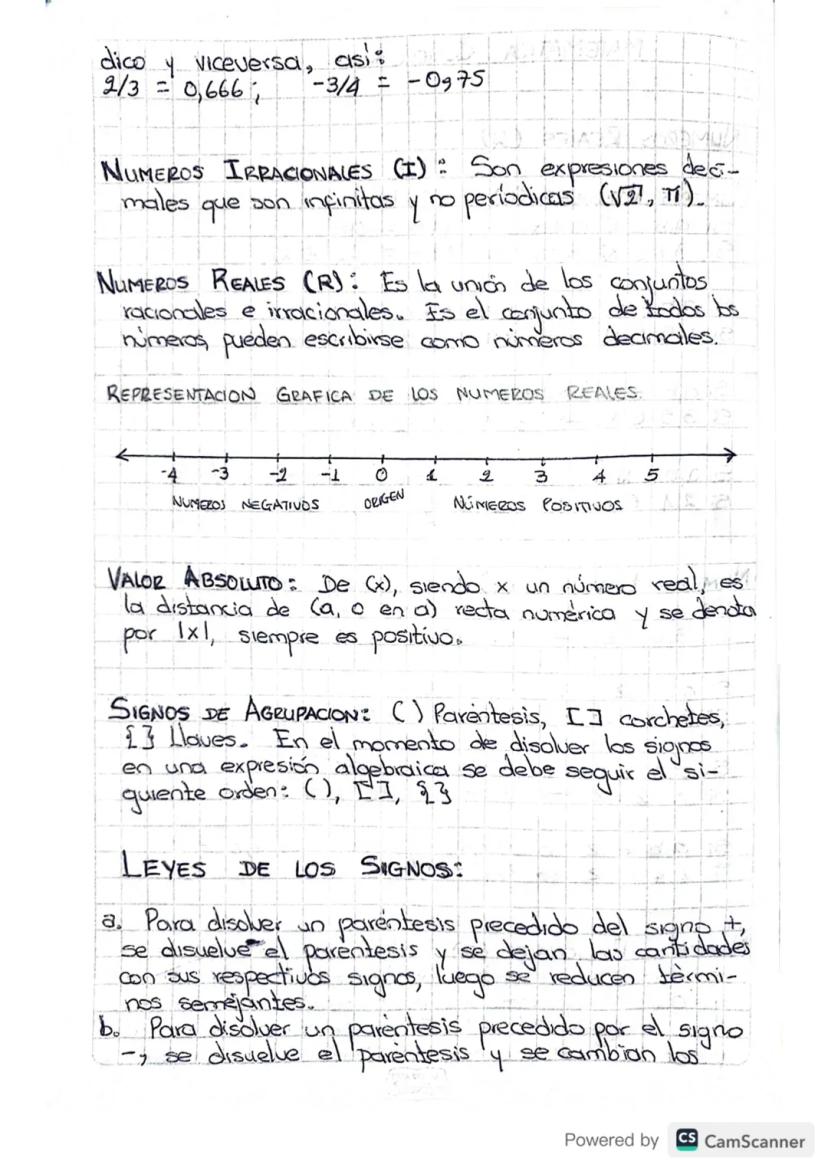 dico y viceversa, así:
2/3 = 0,666; -3/4 = -0,75
NUMEROS IRRACIONALES (I): Son expresiones deci-
males que son infinitas y no períodicas (√2, π).
NUMEROS REALES (R): Es la unión de los conjuntos
racionales e irracionales. Es el conjunto de todos los
números, pueden escribirse como números decimales.
REPRESENTACION GRAFICA DE LOS NUMEROS REALES.
-4 -3 -2 -1 0 1 2 3 4 5
NUMEROS NEGATIVOS ORIGEN NÚMEROS POSITIVOS
VALOR ABSOLUTO: De (x), siendo x un número real, es
la distancia de (a, o en a) recta numérica y se denota
por |x|, siempre es positivo.
SIGNOS DE AGRUPACION: ( ) Paréntesis, [ ] corchetes,
{ } Llaves. En el momento de disolver los signos
en una expresión algebraica se debe seguir el si-
guiente orden: ( ), [ ], { }
LEYES DE LOS SIGNOS:
a. Para disolver un paréntesis precedido del signo +,
se disuelve el paréntesis y se dejan las cantidades
con sus respectivos signos, luego se reducen térmi-
nos semejantes.
b. Para disolver un paréntesis precedido por el signo
-, se disuelve el paréntesis y se cambian los
Powered by CS CamScanner